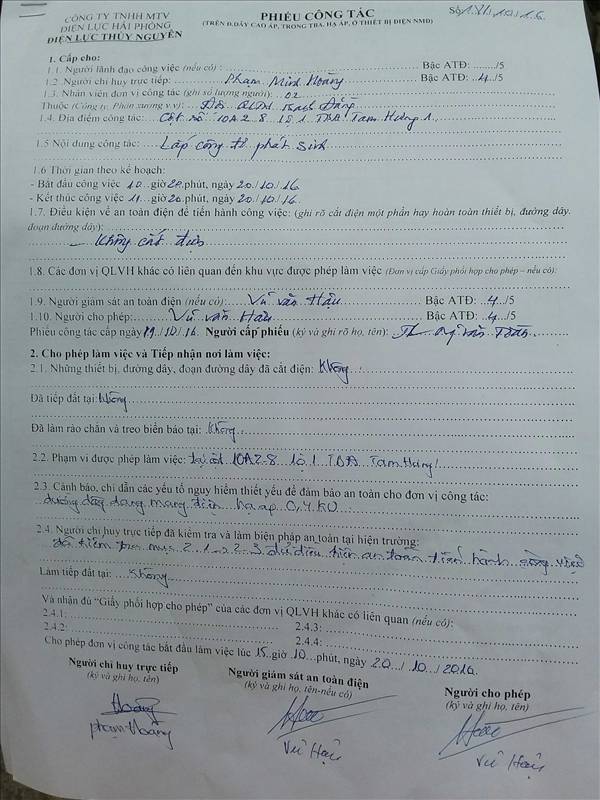 CÔNG TY TNHH MTV
ĐIỆN LỰC HẢI PHÒNG
ĐIỆN LỰC THỦY NGUYÊN
PHIẾU CÔNG TÁC
(TRÊN Đ.DÂY CAO ÁP, TRONG TBA, HẠ ÁP, Ở THIẾT BỊ ĐIỆN NMĐ)
1. Cấp cho:
1.1. Người lãnh đạo công việc (nếu có) : Bậc ATĐ: ......../5
1.2. Người chỉ huy trực tiếp: Phạm Minh Hoàng Bậc ATĐ: ..4../5
1.3. Nhân viên đơn vị công tác (ghi số lượng người): 02
Thuộc (Công ty, Phân xưởng v.v): Đội QLĐN Bạch Đằng
1.4. Địa điểm công tác: Cột số 10A2-8 lộ 1 TBA Tam Hưng 1
1.5 Nội dung công tác: Lắp công tơ phát sinh
1.6 Thời gian theo kế hoạch:
- Bắt đầu công việc 10 giờ 20 phút, ngày 20/10/16
- Kết thúc công việc 11 giờ 20 phút, ngày 20/10/16
1.7. Điều kiện về an toàn điện để tiến hành công việc: (ghi rõ cắt điện một phần hay hoàn toàn thiết bị, đường dây,
đoạn đường dây):
- Không cắt điện
1.8. Các đơn vị QLVH khác có liên quan đến khu vực được phép làm việc (Đơn vị cấp Giấy phối hợp cho phép – nếu có):
1.9. Người giám sát an toàn điện (nếu có): Vũ Văn Hậu Bậc ATĐ: 4/5
1.10. Người cho phép: Vũ Văn Hậu Bậc ATĐ: 4/5
Phiếu công tác cấp ngày 19/10/16 Người cấp phiếu (ký và ghi rõ họ, tên):
2. Cho phép làm việc và Tiếp nhận nơi làm việc:
2.1. Những thiết bị, đường dây, đoạn đường dây đã cắt điện: Không
Đã tiếp đất tại: Không
Đã làm rào chắn và treo biển báo tại: Không
2.2. Phạm vi được phép làm việc: tại cột 10A2-8 lộ 1 TBA Tam Hưng 1
2.3. Cảnh báo, chỉ dẫn các yếu tố nguy hiểm thiết yếu để đảm bảo an toàn cho đơn vị công tác:
đường dây đang mang điện hạ áp 0,4KV
2.4. Người chỉ huy trực tiếp đã kiểm tra và làm biện pháp an toàn tại hiện trường:
đã kiểm tra mục 2-1 2-3 đủ điều kiện an toàn tiến hành công việc
Làm tiếp đất tại: Không
Và nhận đủ “Giấy phối hợp cho phép” của các đơn vị QLVH khác có liên quan (nếu có):
2.4.1: 2.4.3:
2.4.2: 2.4.4:
Cho phép đơn vị công tác bắt đầu làm việc lúc 15 giờ 10 phút, ngày 20/10/2016
Người chỉ huy trực tiếp
(ký và ghi họ, tên)
Người giám sát an toàn điện
(ký và ghi họ, tên-nếu có)
Người cho phép
(ký và ghi họ, tên)
phạm Hoàng
Vũ Hậu
Vũ Hậu